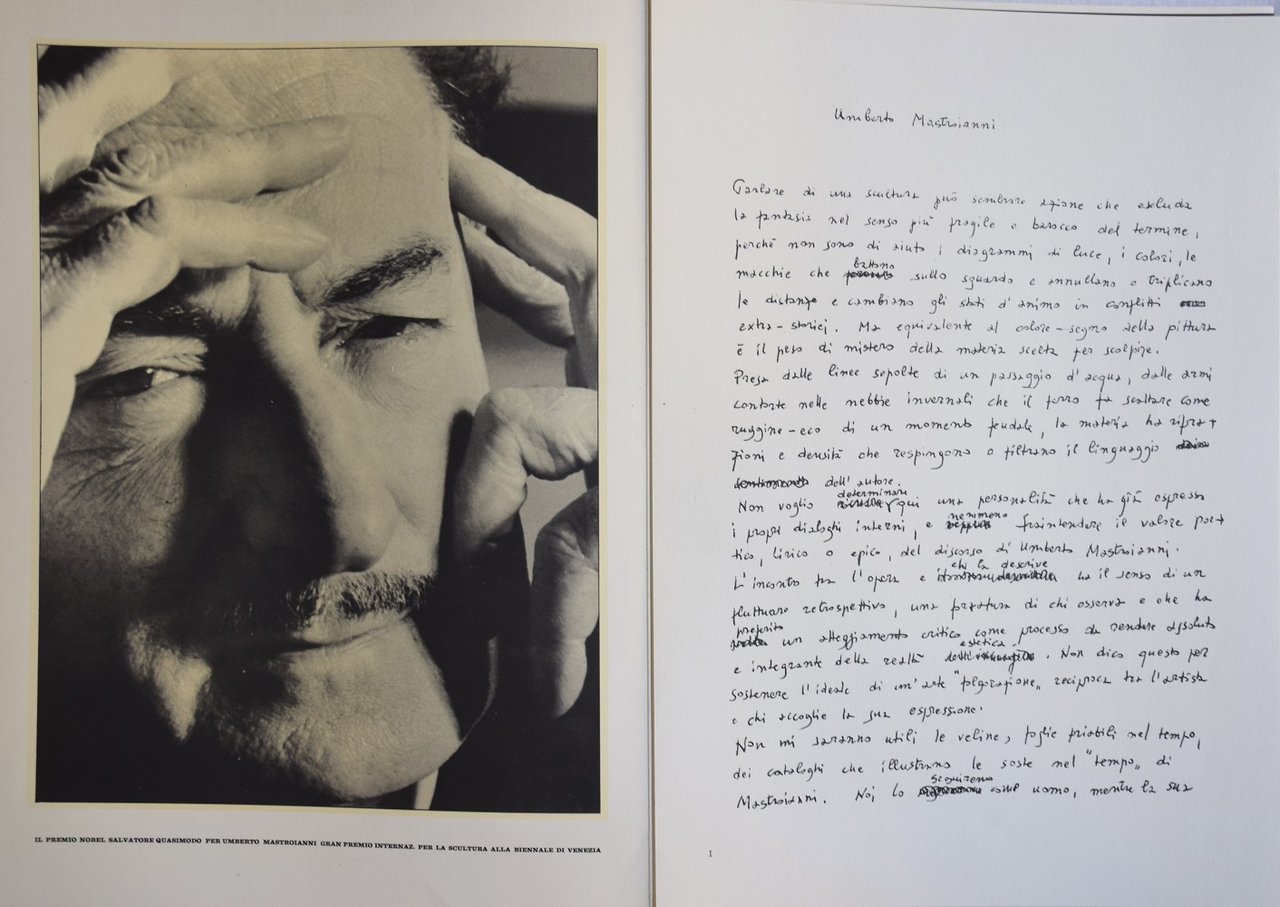 IL PREMIO NOBEL SALVATORE QUASIMODO PER UMBERTO MASTROIANNI GRAN PREMIO INTERNAZ. PER LA SCULTURA ALLA BIENNALE DI VENEZIA
Umberto Mastroianni
Parlare di una scultura può sembrare azione che escluda
la fantasia nel senso più fragile e barocco del termine,
perché non sono di aiuto i diagrammi di luce, i colori, le
macchie che battono sullo sguardo e annullano o triplicano
le distanze e cambiano gli stati d'animo in conflitti
extra-storici. Ma equivalente al colore-segno della pittura
è il peso di mistero della materia scelta per scolpire.
Presa dalle linee sepolte di un passaggio d'acqua, dalle armi
contorte nelle nebbie invernali che il ferro fa scattare come
ruggine-eco di un momento feudale, la materia ha rifra+
zioni e densità che respingono o filtrano il linguaggio
dell'autore.
Non voglio determinare qui una personalità che ha già espresso
i propri dialoghi interni, e nemmeno fraintendere il valore poe+
tico, lirico o epico, del discorso di Umberto Mastroianni.
L'incontro tra l'opera e chi la descrive ha il senso di un
fluttuare retrospettivo, una forzatura di chi osserva e che ha
preferito un atteggiamento critico come processo da rendere assoluto
e integrante della realtà estetica. Non dico questo per
sostenere l'ideale di un'arte "folgorazione" reciproca tra l'artista
e chi accoglie la sua espressione.
Non mi saranno utili le veline, foglie friabili nel tempo,
dei cataloghi che illustrano le soste nel "tempo" di
Mastroianni. Noi lo seguiremo come uomo, mentre la sua
1